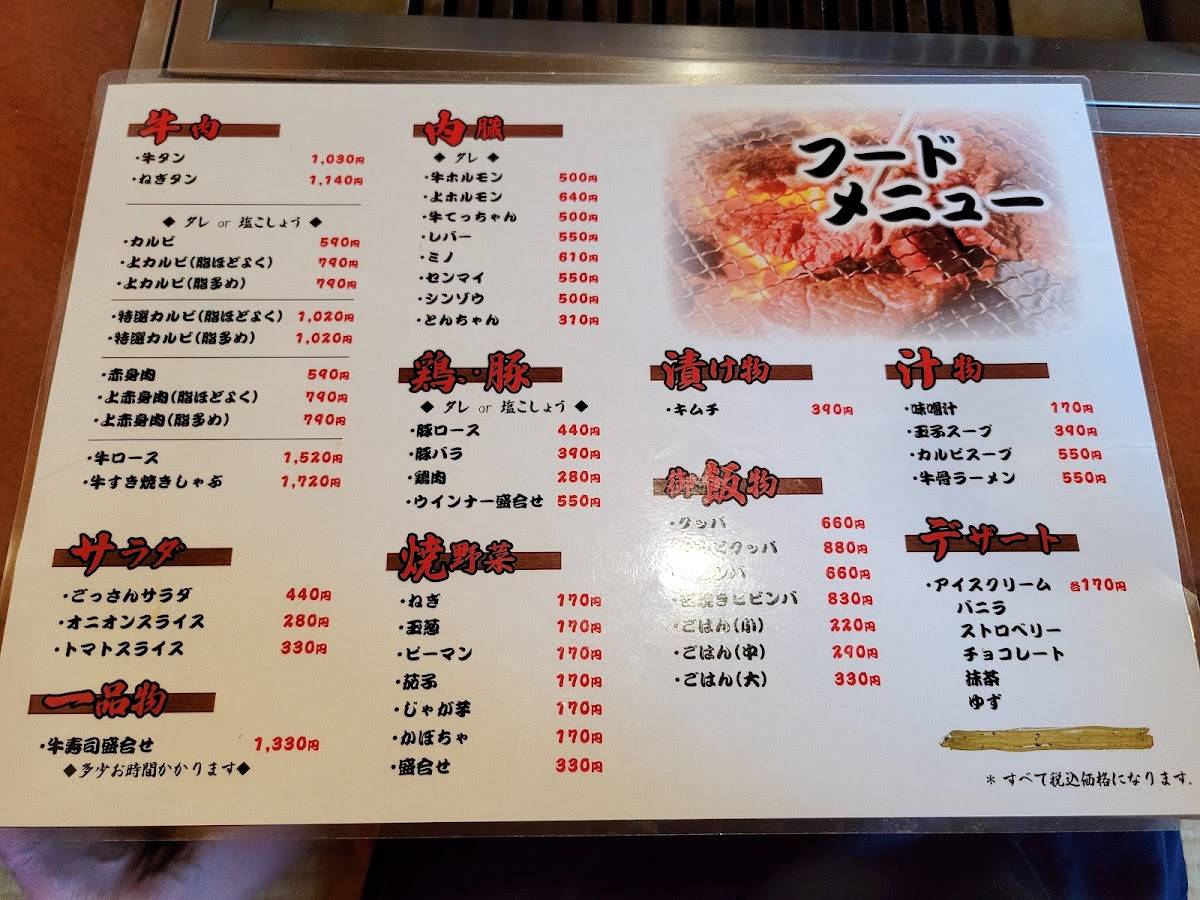 牛肉
・牛タン 1,030円
・ねぎタン 1,140円
◆ タレ or 塩こしょう ◆
・カルビ 590円
・上カルビ(脂ほどよく) 790円
・上カルビ(脂多め) 790円
・特選カルビ(脂ほどよく) 1,020円
・特選カルビ(脂多め) 1,020円
・赤身肉 590円
・上赤身肉(脂ほどよく) 790円
・上赤身肉(脂多め) 790円
・牛ロース 1,520円
・牛すき焼きしゃぶ 1,720円
サラダ
・ごっさんサラダ 440円
・オニオンスライス 280円
・トマトスライス 330円
一品物
・牛寿司盛合せ 1,330円
◆多少お時間かかります◆
内臓
◆ タレ ◆
・牛ホルモン 500円
・上ホルモン 640円
・牛てっちゃん 500円
・レバー 550円
・ミノ 610円
・センマイ 550円
・シンゾウ 500円
・とんちゃん 310円
鶏・豚
◆ タレ or 塩こしょう ◆
・豚ロース 440円
・豚バラ 390円
・鶏肉 280円
・ウインナー盛合せ 550円
焼野菜
・ねぎ 170円
・玉葱 170円
・ピーマン 170円
・茄子 170円
・じゃが芋 170円
・かぼちゃ 170円
・盛合せ 330円
フード
メニュー
漬け物
・キムチ 390円
御飯物
・クッパ 660円
クッパ 880円
ンバ 660円
焼きビビンバ 830円
・ごはん(小) 220円
・ごはん(中) 290円
・ごはん(大) 330円
汁物
・味噌汁 170円
・玉子スープ 390円
・カルビスープ 550円
・牛骨ラーメン 550円
デザート
・アイスクリーム 各170円
バニラ
ストロベリー
チョコレート
抹茶
ゆず
＊すべて税込価格になります.